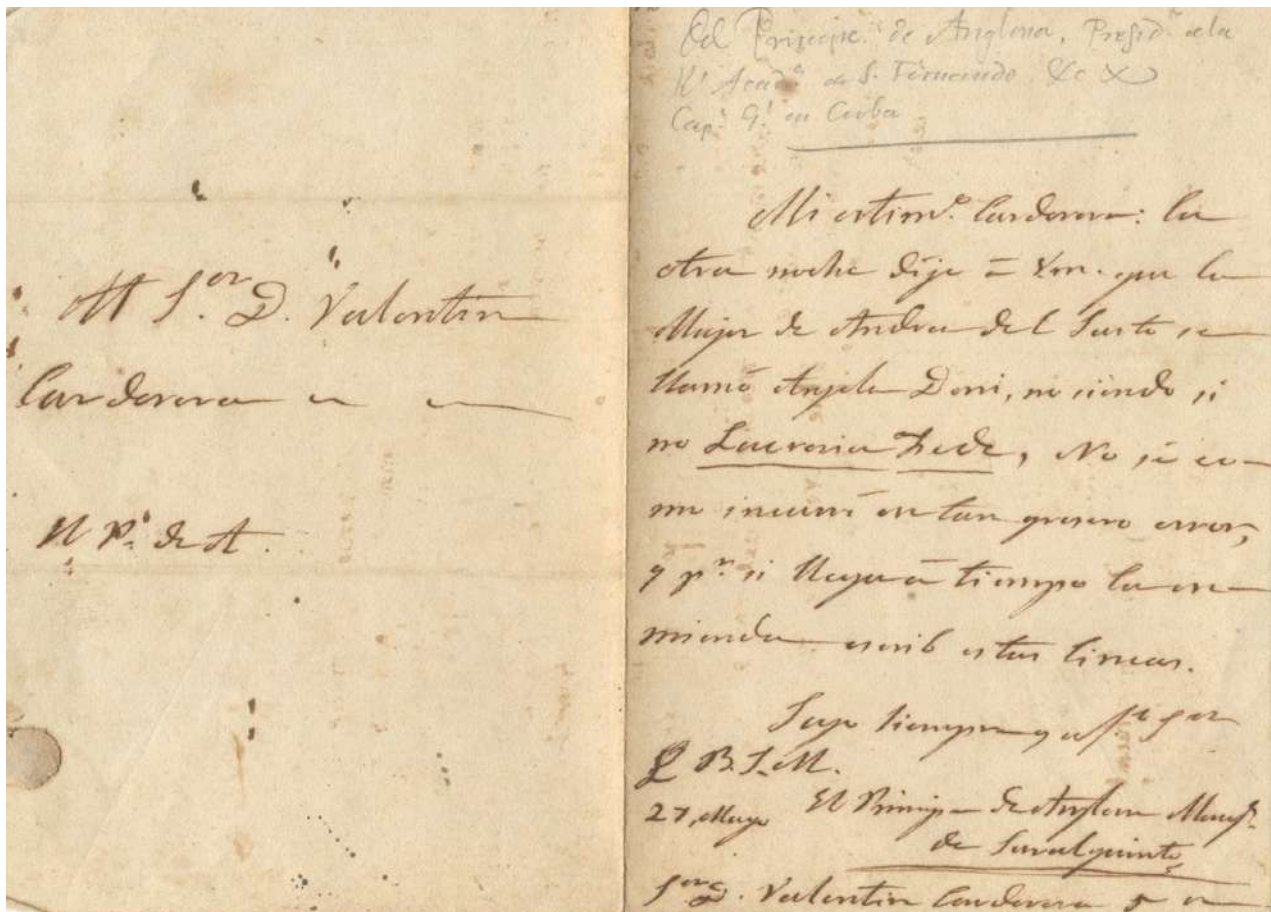 Al S.or D. Valentin
Carderera
El P.e de A.
Del Principe de Anglona, Presid.e de la
R.l Acad.a de S. Fernando &c &
Cap.n G.l en Cuba
Mi estim.do Carderera: la
otra noche dije á Vm. que la
Mujer de Andrea del Sarto se
llamó Angela Doni, no siendo si
no Lucrecia Fede, No sé co-
mo incurrí en tan grosero error,
y p.a si llega á tiempo la en-
mienda escrib estas lineas.
Suyo siempre y af.to
Q B. S. M.
27, Mayo El Principe de Anglona Marq.s
de Javalquinto
S.or D. Valentin Carderera